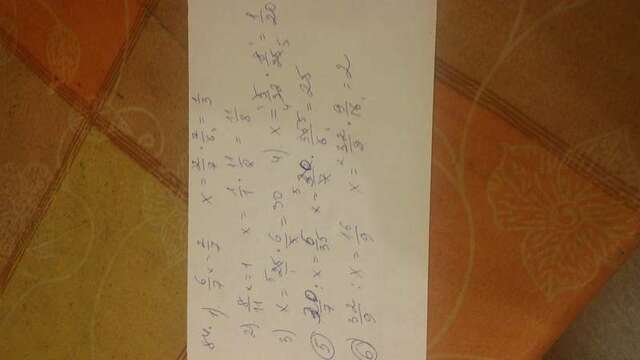 84. 1) 6/7 x = 2/7 x = 2/7 · 7/6 = 1/3
2) 8/11 x = 1 x = 1/1 · 11/8 = 11/8
3) x = 25 · 6/5 = 30 4) x = · = 1/20
5) 30/7 : x = 6/35 x = 30/7 · 35/6 = 25
6) 32/9 : x = 16/9 x = 32/9 · 9/16 = 2